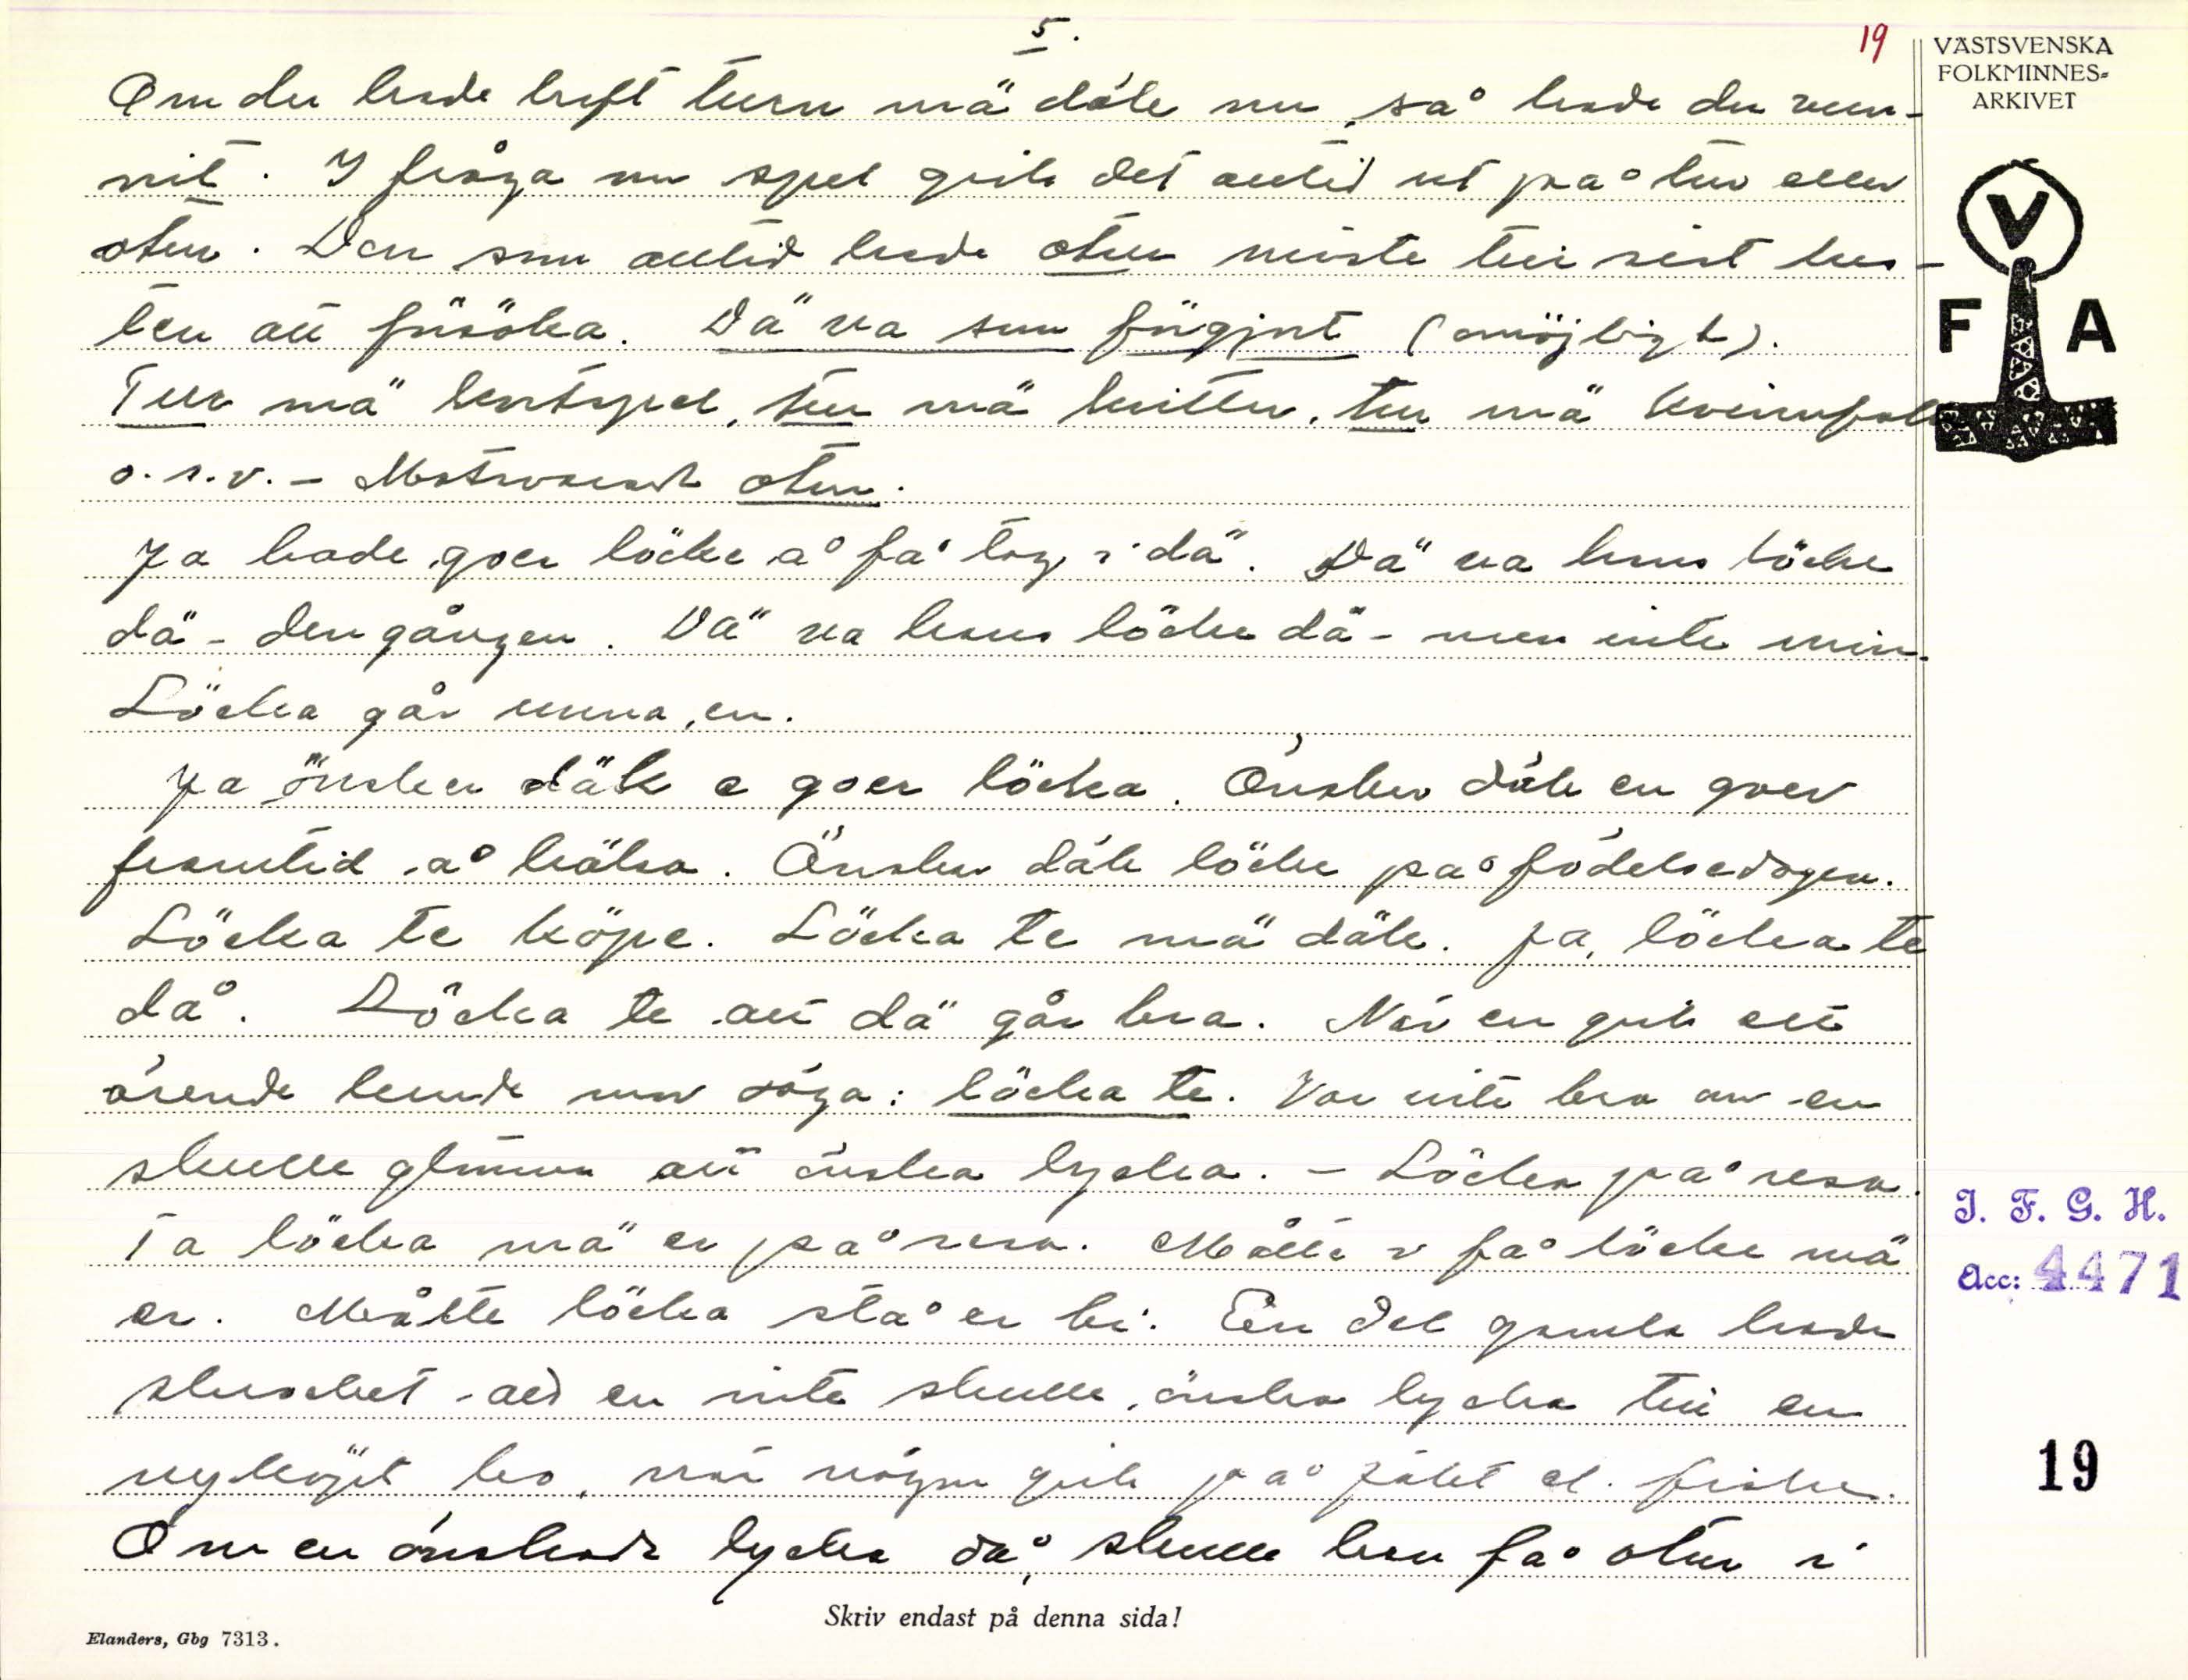 5.
19
VÄSTSVENSKA
FOLKMINNES-
ARKIVET
V
F A
Om du hade haft turn mä däk nu, så hade du vun-
nit. I fråga om spel gick det alltid ut på tur eller
otur. Den som alltid hade otur miste till sist lus-
ten att försöka. Dä va som förgjort (omöjligt).
Tur mä kortspel, tur mä lotter, tur mä kvinnfolk
o.s.v. - Motsvarande otur.
Ja hade goer löcke å få tag i dä. Dä va hans löcke
dä - den gången. Dä va hans löcke dä - men inte min.
Löcka går unna, en.
Ja önsker däk e goer löcka. Önsker däk en goer
framtid å hälsa. Önsker däk löcke på födelsedagen.
Löcka te köpe. Löcka te mä däk. Ja, löcka te
då. Löcka te att dä går bra. När en gick ett
ärende kunde man säga: löcka te. Var inte bra om en
skulle glömma att önska lycka. - Löcka på resa.
Ta löcka mä er på resa. Måtte i få löcke mä
er. Måtte löcka stå er bi. En del gamla hade
skrocket att en inte skulle önska lycka till en
nyköpt ko, när någon gick på jakt el. fiske.
Om en önskade lycka då, skulle han få otur i
Skriv endast på denna sida!
Elanders, Gbg 7313.
I. F. G. H.
Acc: 4471
19